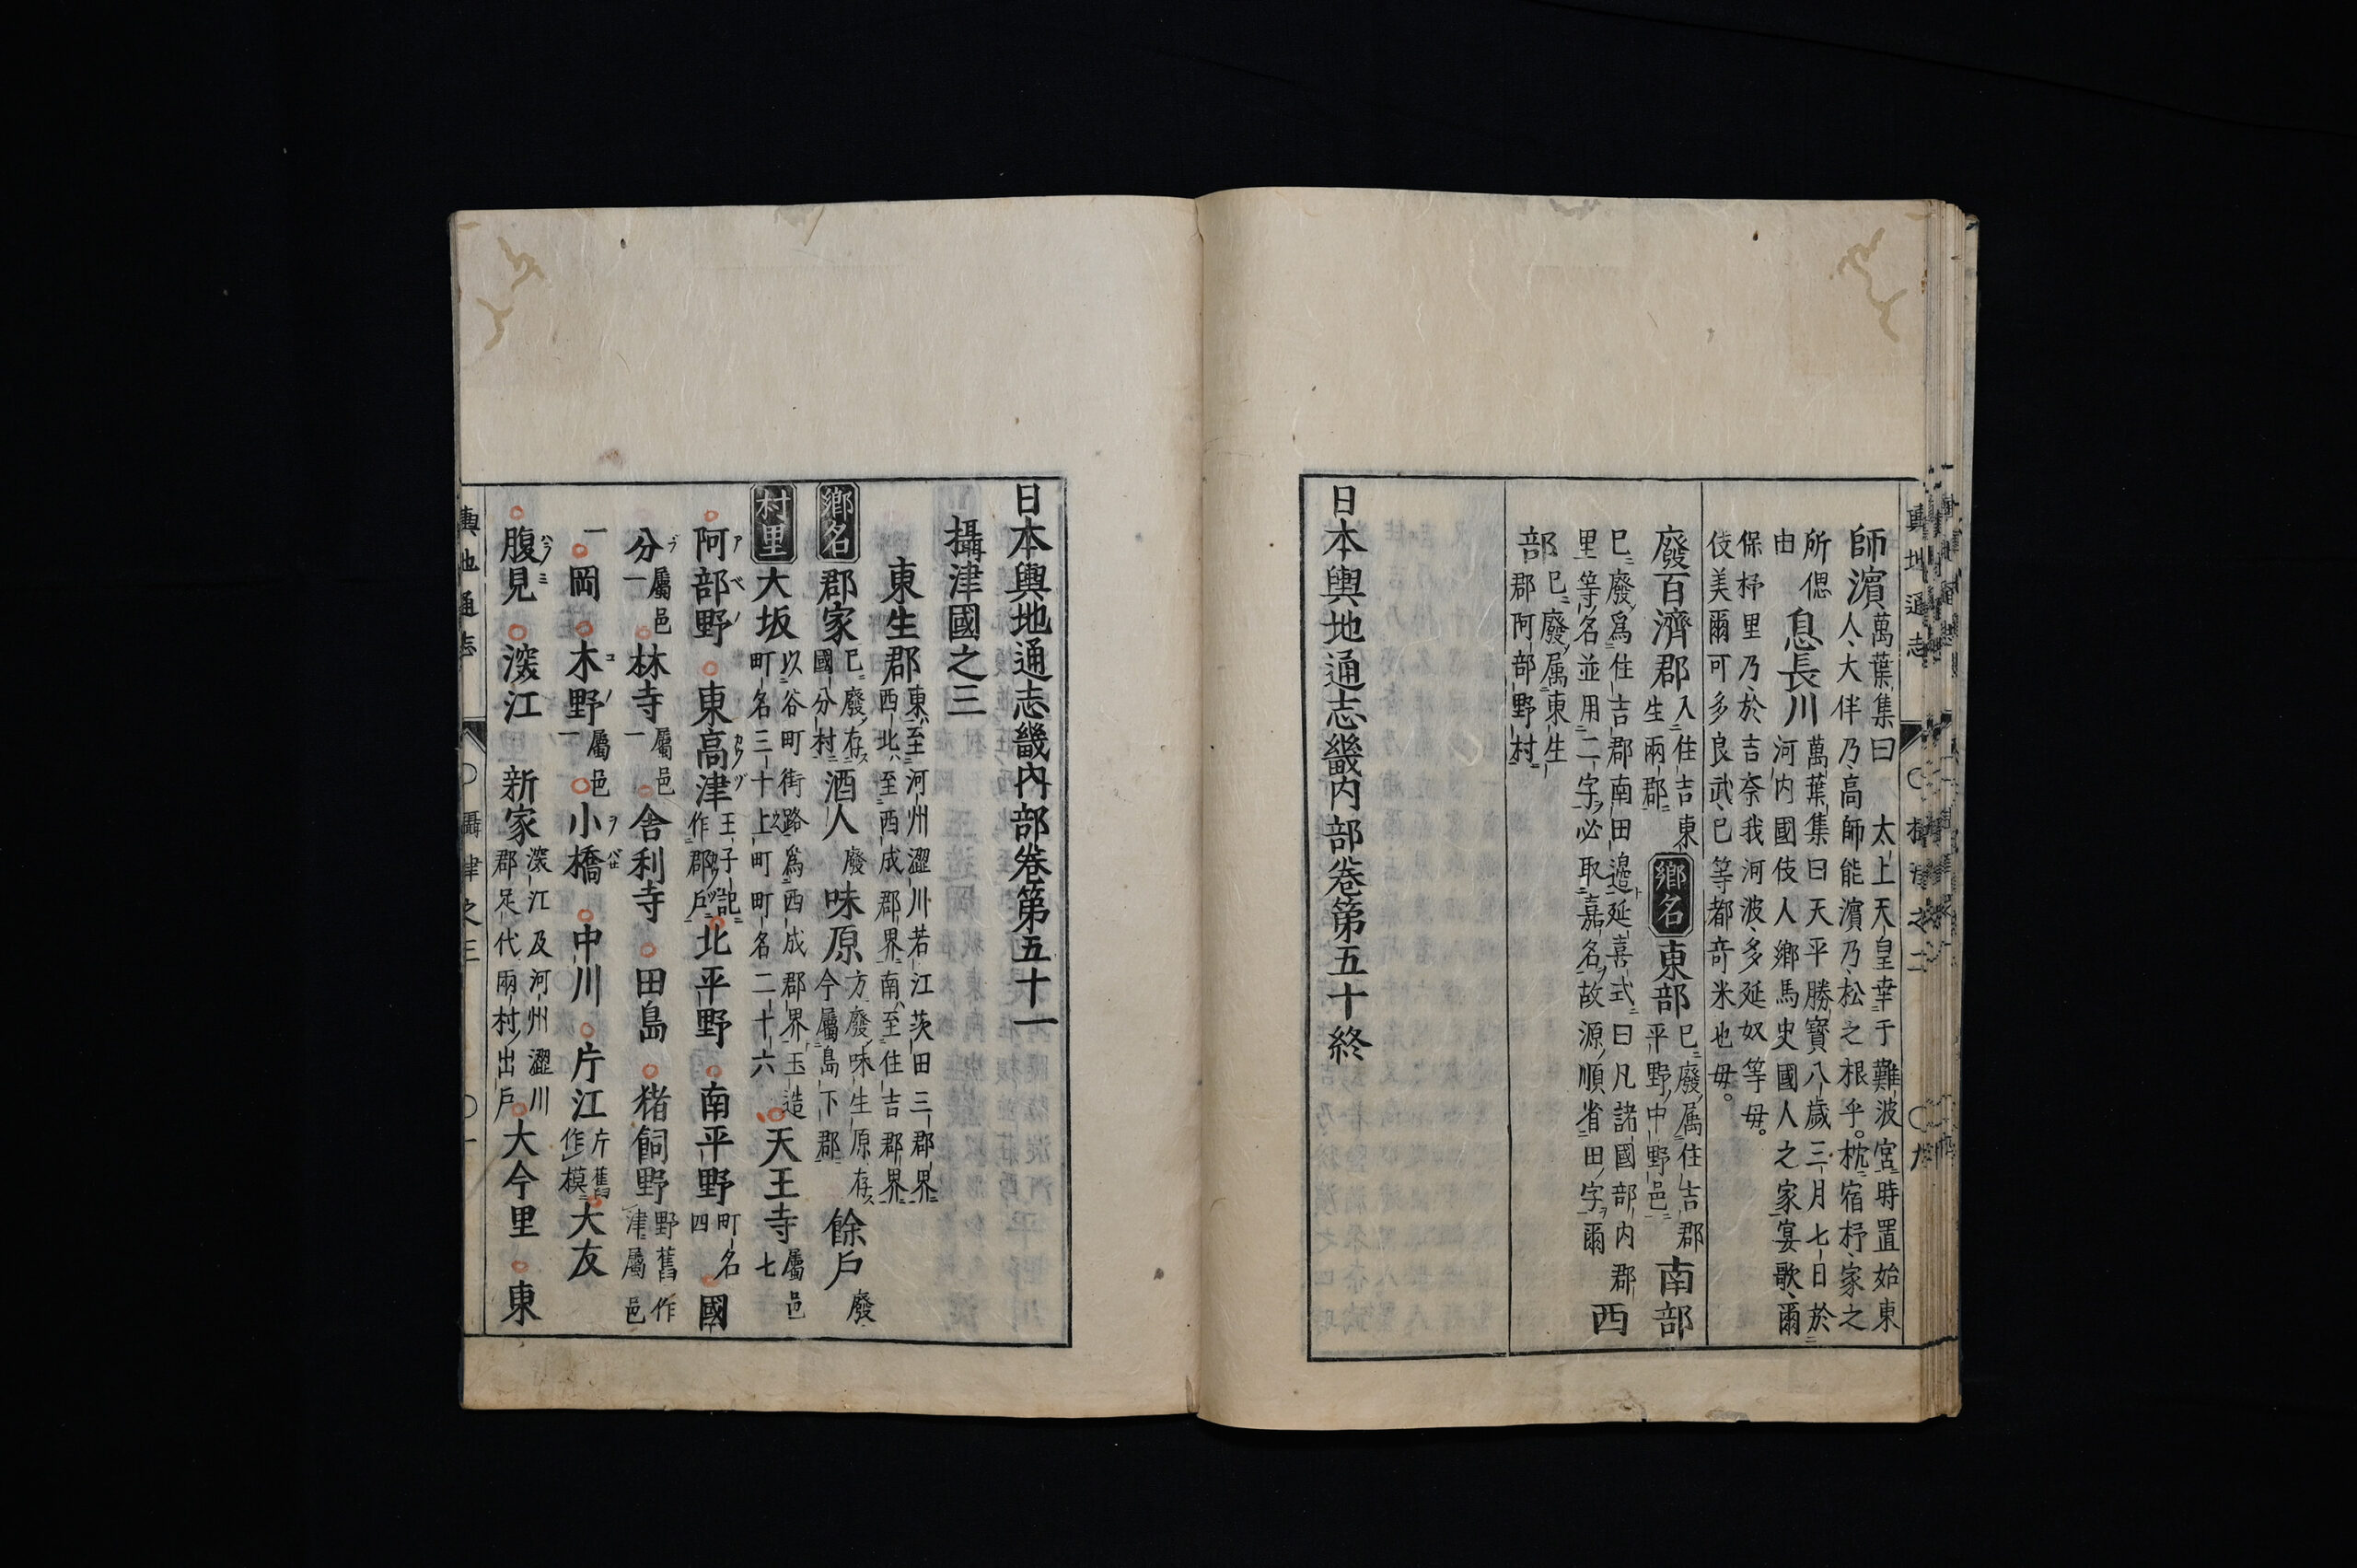 師濵萬葉集曰　太上天皇幸于難波宮時置始東
人大伴乃高師能濵乃松之根乎枕宿杼家之
所偲息長川萬葉集曰天平勝寳八歳三月七日於
由　河内國伎人郷馬史國人之家宴歌爾
保杼里乃於吉奈我河波多延奴等毋
伎美爾可多良武已等都竒米也毋
廢百濟郡入住吉東
生兩郡
鄉名東部巳廢属住吉郡
平野中野邑南部
巳廢爲住吉郡南田邉延喜式曰凡諸國部内郡
里等名並用二字必取嘉名故源順省田字爾西
部巳廢属東生
郡阿部野村
日本輿地通志畿内部巻第五十終
日本輿地通志畿内部巻第五十一
攝津國之三
東生郡東至河州澀川若江茨田三郡界
西北至西成郡界南至住吉郡界
鄉名郡家巳廢存
國分村酒人廢味原方廢味生原存
今屬島下郡餘戸廢
村里大坂以谷町街路爲西成郡界玉造
町名三十上町町名二十六天王寺屬邑
七
阿部野東高津王子記
作郡戸北平野南平野町名
四國
分屬邑
一林寺屬邑
一舎利寺田島猪飼野野舊作
津屬邑
一岡木野屬邑
一小橋中川片江片舊
作模大友
腹見深江新家深江及河州澀川
郡足代兩村出戸大今里東
輿地通志　攝津之三　一